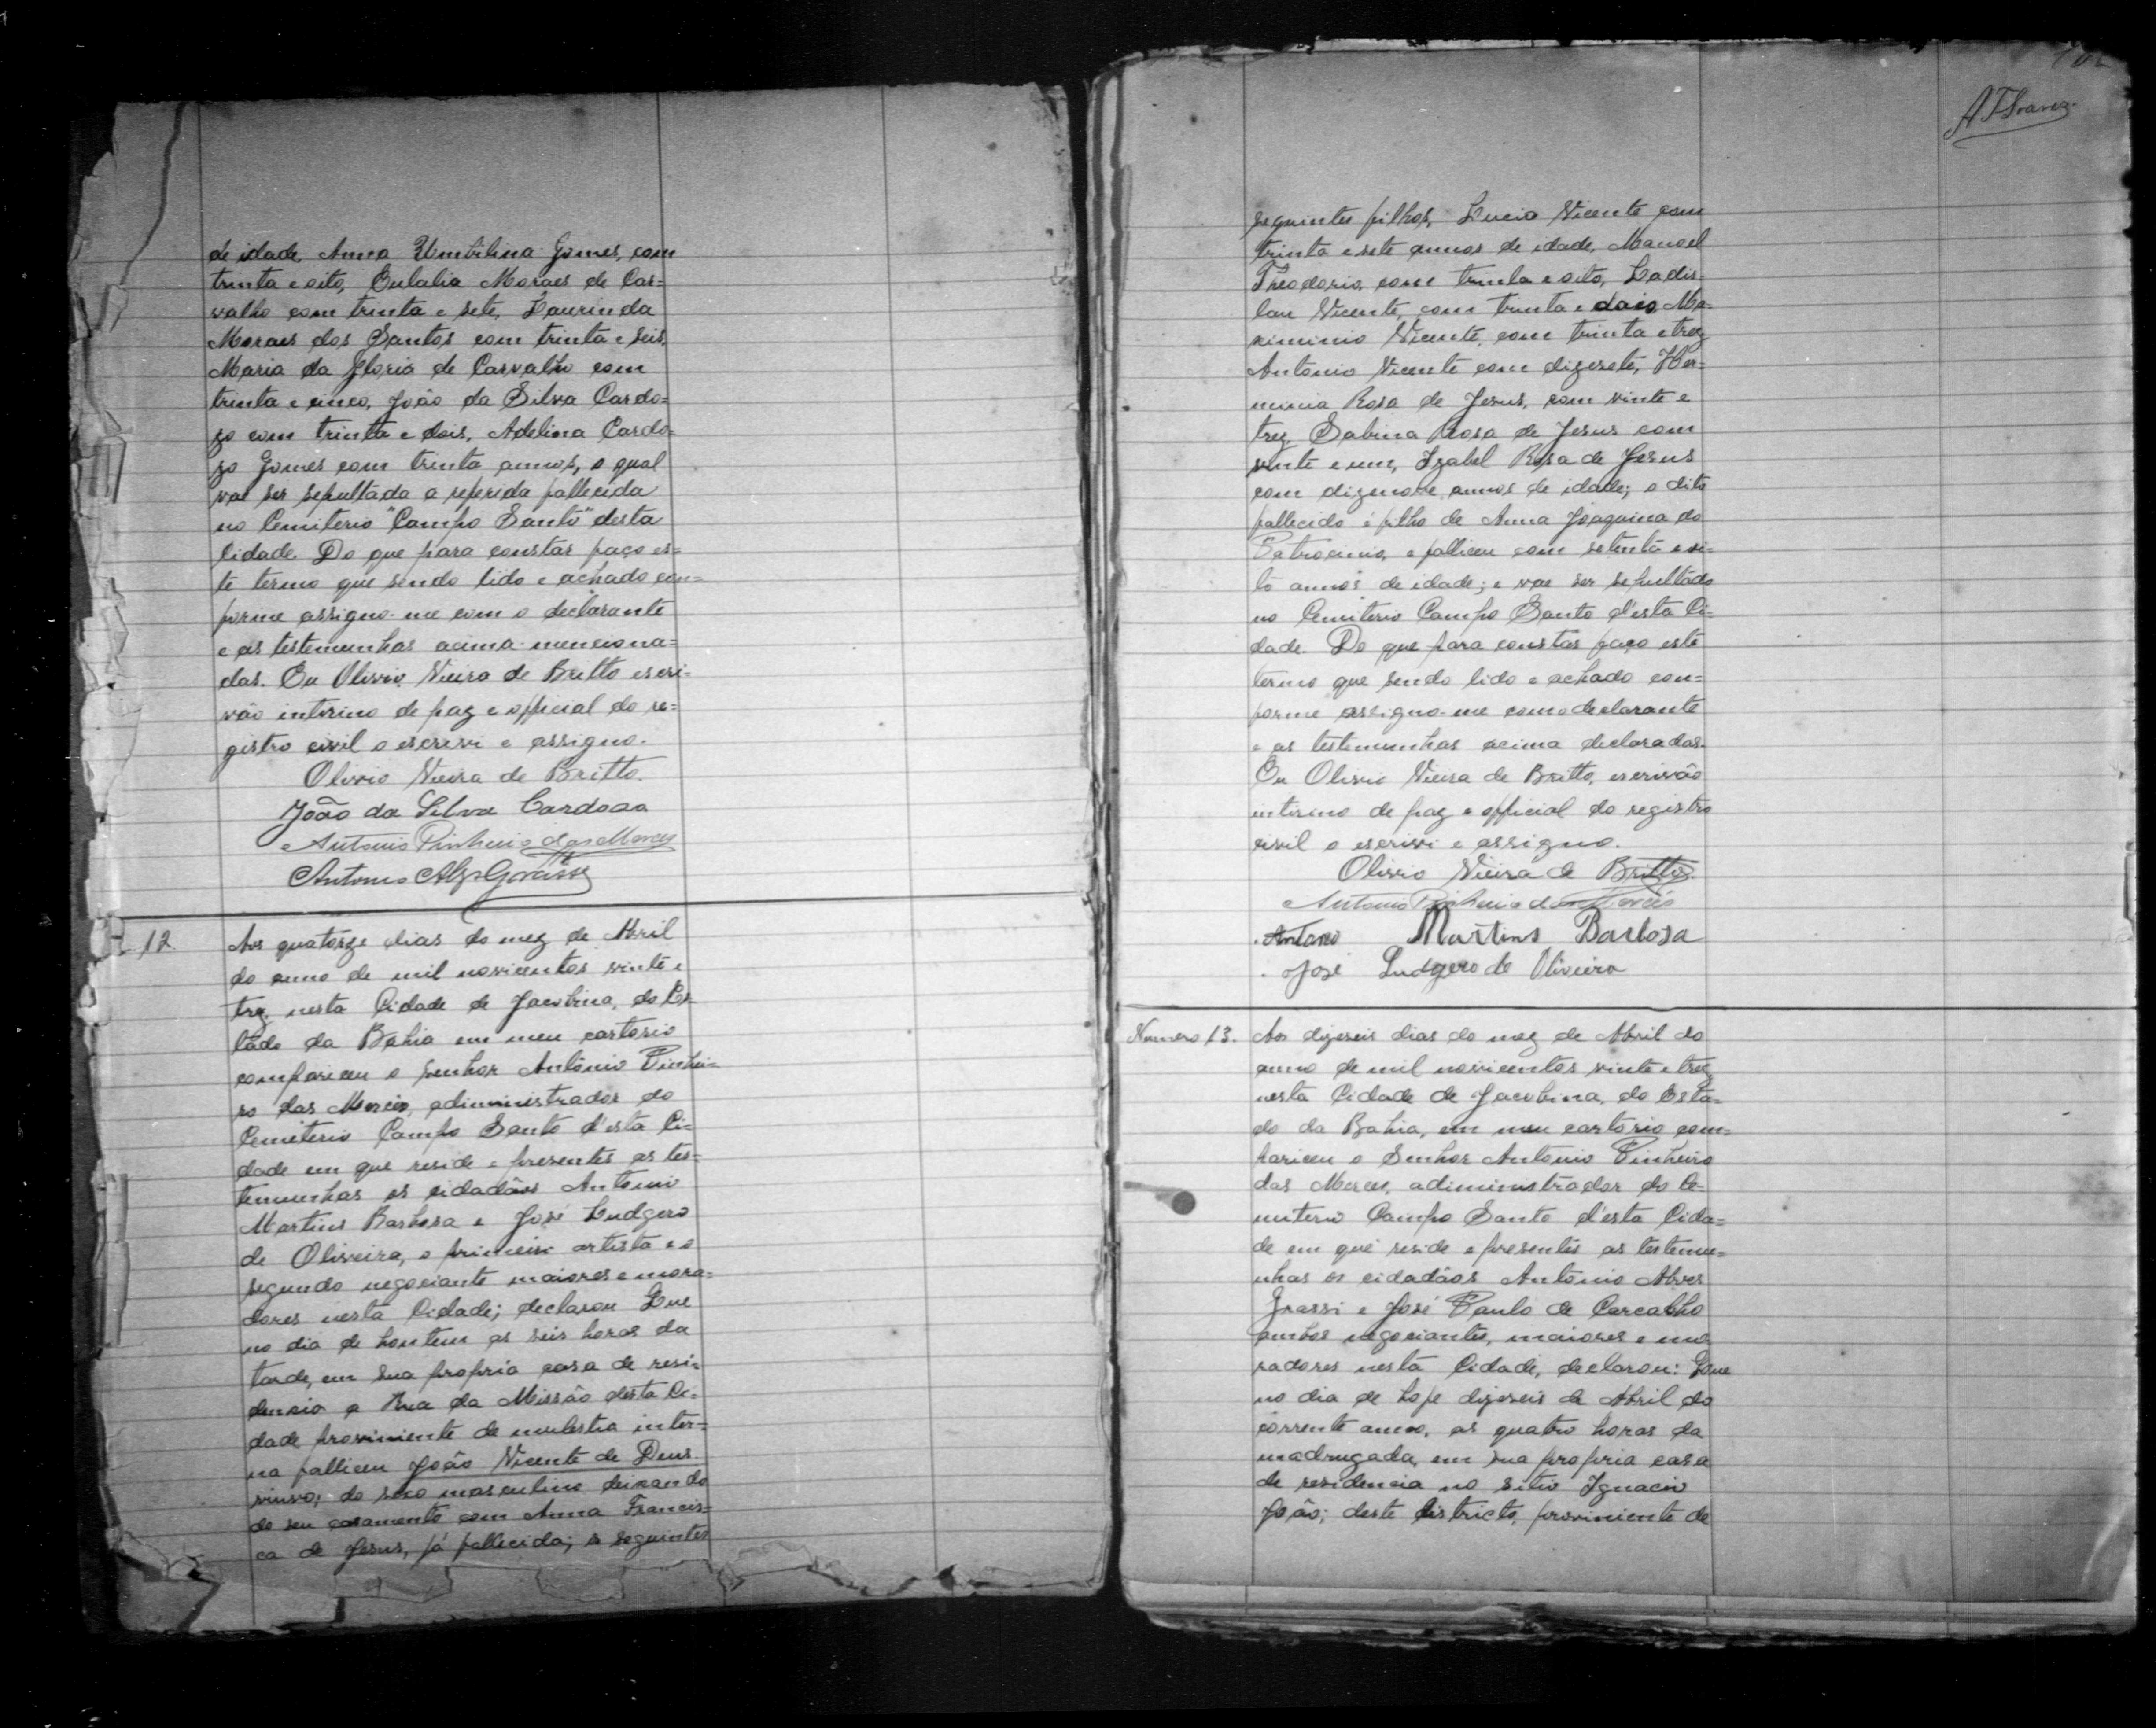 de idade, Anna Umbilina Gomes, com
trinta e oito, Eulalia Moraes de Car=
valho com trinta e sete, Laurinda
Moraes dos Santos com trinta e seis,
Maria da Gloria de Carvalho com
trinta e cinco, João da Silva Cardo=
zo com trinta e dois, Adelina Cardo=
zo Gomes com trinta annos, o qual
vai ser sepultada a referida fallecida
no Cemiterio "Campo Santo" desta
Cidade. Do que para constar faço es=
te termo que sendo lido e achado con=
forme assigno-me com o declarante
e as testemunhas acima menciona=
das. Eu Olivio Vieira de Britto escri=
vão interino de paz e official do re=
gistro civil o escrevi e assigno.
Olivio Vieira de Britto.
João da Silva Cardoso
Antonio Pinheiro das Merces
Antonio Alz Grassi
12
Aos quatorze dias do mez de Abril
do anno de mil novicentos vinte e
trez, nesta Cidade de Jacobina, do Es=
tado da Bahia em meu cartorio
compariceu o Senhor Antônio Pinhei=
ro das Merces, adiministrador do
Cemiterio Campo Santo d'esta Ci=
dade em que reside e presentes as tes=
temunhas os cidadãos Antonio
Martins Barbosa e José Ludgero
de Oliveira, o primeiro artista e o
segundo negociante maiores e mora=
dores nesta Cidade; declarou Que
no dia de hontem as seis horas da
tarde, em sua propria casa de resi=
dencia a Rua da Missão desta Ci=
dade, proviniente de mulestia inter=
na falliceu João Vicente de Deus
viuvo; do sexo masculino deixando
do seu casamento com Anna Francis=
ca de Jesus, já fallecida; os seguintes
A F Soares
seguintes filhos, Lucia Vicente com
trinta e sete annos de idade, Manoel
Theodorio, com trinta e oito, Ladis=
lau Vicente, com trinta e dois, Ma=
ximinio Vicente, com trinta e trez
Antonio Vicente com dizesete, Her=
minia Rosa de Jesus, com vinte e
trez, Sabina Rosa de Jesus com
vinte e um, Izabel Rosa de Jesus
com dizenove annos de idade; o dito
fallecido é filho de Anna Joaquina do
Patrocinio, e falliceu com setenta e oi=
to annos de idade; e vae ser sepultado
no Cemiterio Campo Santo d'esta Ci=
dade. Do que para constar faço este
termo que sendo lido e achado con=
forme assigno-me com o declarante
e as testemunhas acima declaradas.
Eu Olivio Vieira de Britto, escrivão
interino de paz e official do registro
civil o escrivi e assigno.
Olivio Vieira de Britto.
Antonio Pinheiro das Merces
Antonio Martins Barbosa
José Ludgero de Oliveira
Numero 13.
Aos dizeseis dias do mez de Abril do
anno de mil novicentos vinte e trez,
nesta Cidade de Jacobina, do Esta=
do da Bahia, em meu cartório com=
pariceu o Senhor Antonio Pinheiro
das Merces, adiministrador do Ce=
miterio Campo Santo d'esta Cida=
de em que reside e presentes as testemu=
nhas os cidadãos Antonio Alves
Grassi e José Paulo de Carvalho
ambos negociantes, maiores e mo=
radores nesta Cidade, declarou: Que
no dia de hoje dizeseis de Abril do
corrente anno, as quatro horas da
madrugada, em sua propria casa
de residencia no sitio Ignacio
João; deste districto, proviniente de